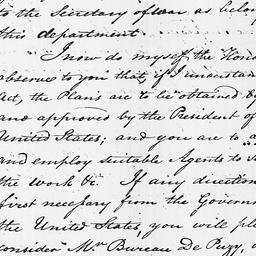 to the Secretary of war as belon
this department.
I now do myself the Hono
observe to you that, if I understan
Act, the Plans are to be obtained b
and approved by the President of
United States; and you are to a
and employ suitable Agents to s
the work &c. If any direction
first necessary from the Governm
the United States, you will plea
consider Mr. Bureau De Puzy, a